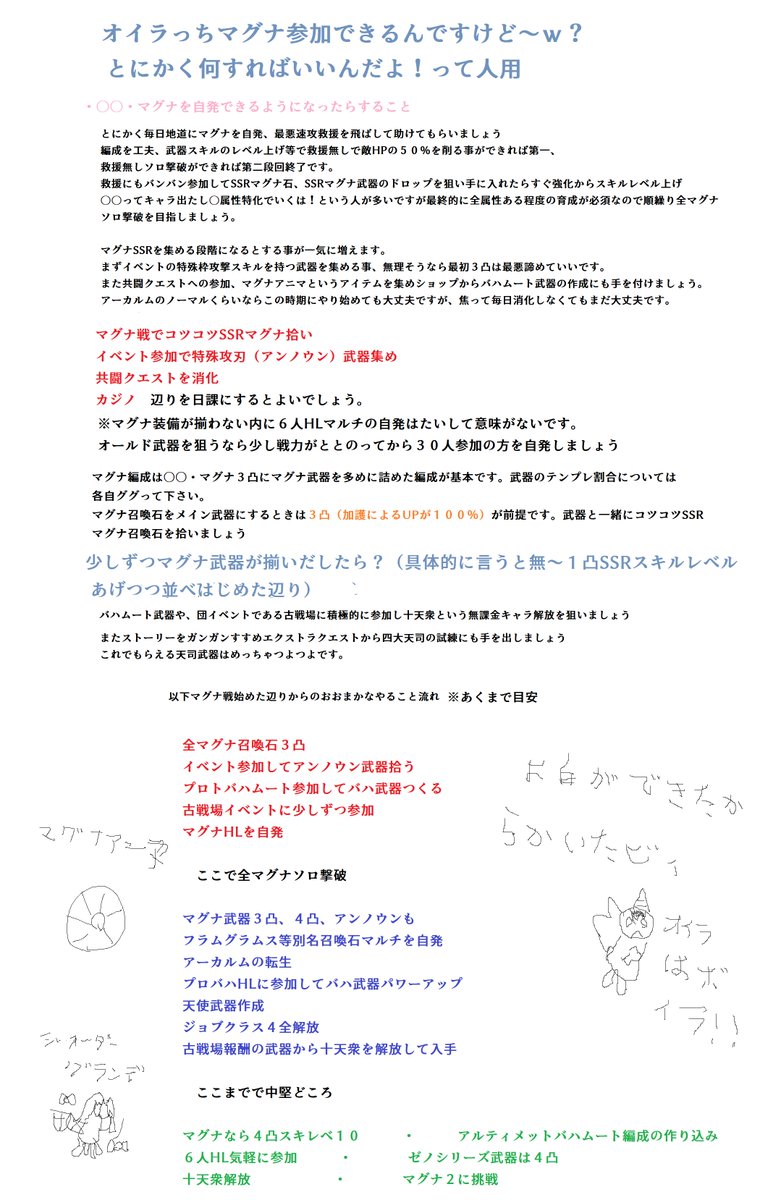 オイラっちマグナ参加できるんですけど～ｗ？
とにかく何すればいいんだよ！って人用
・○○・マグナを自発できるようになったらすること
とにかく毎日地道にマグナを自発、最悪速攻救援を飛ばして助けてもらいましょう
編成を工夫、武器スキルのレベル上げ等で救援無しで敵HPの５０％を削る事ができれば第一、
救援無しソロ撃破ができれば第二段回終了です。
救援にもバンバン参加してSSRマグナ石、SSRマグナ武器のドロップを狙い手に入れたらすぐ強化からスキルレベル上げ
○○ってキャラ出たし○属性特化でいくは！という人が多いですが最終的に全属性ある程度の育成が必須なので順繰り全マグナ
ソロ撃破を目指しましょう。
マグナSSRを集める段階になるとする事が一気に増えます。
まずイベントの特殊枠攻撃スキルを持つ武器を集める事、無理そうなら最初３凸は最悪諦めていいです。
また共闘クエストへの参加、マグナアニマというアイテムを集めショップからバハムート武器の作成にも手を付けましょう。
アーカルムのノーマルくらいならこの時期にやり始めても大丈夫ですが、焦って毎日消化しなくてもまだ大丈夫です。
マグナ戦でコツコツSSRマグナ拾い
イベント参加で特殊攻刃（アンノウン）武器集め
共闘クエストを消化
カジノ　辺りを日課にするとよいでしょう。
※マグナ装備が揃わない内に６人HLマルチの自発はたいして意味がないです。
オールド武器を狙うなら少し戦力がととのってから３０人参加の方を自発しましょう
マグナ編成は○○・マグナ３凸にマグナ武器を多めに詰めた編成が基本です。武器のテンプレ割合については
各自ググって下さい。
マグナ召喚石をメイン武器にするときは３凸（加護によるUPが１００％）が前提です。武器と一緒にコツコツSSR
マグナ召喚石を拾いましょう
少しずつマグナ武器が揃いだしたら？（具体的に言うと無～１凸SSRスキルレベル
あげつつ並べはじめた辺り）
バハムート武器や、団イベントである古戦場に積極的に参加し十天衆という無課金キャラ解放を狙いましょう
またストーリーをガンガンすすめエクストラクエストから四大天司の試練にも手を出しましょう
これでもらえる天司武器はめっちゃつよつよです。
以下マグナ戦始めた辺りからのおおまかなやること流れ　※あくまで目安
全マグナ召喚石３凸
イベント参加してアンノウン武器拾う
プロトバハムート参加してバハ武器つくる
古戦場イベントに少しずつ参加
マグナHLを自発
ここで全マグナソロ撃破
マグナ武器３凸、４凸、アンノウンも
フラムグラムス等別名召喚石マルチを自発
アーカルムの転生
プロバハHLに参加してバハ武器パワーアップ
天使武器作成
ジョブクラス４全解放
古戦場報酬の武器から十天衆を解放して入手
ここまでで中堅どころ
マグナなら４凸スキレベ１０　・　アルティメットバハムート編成の作り込み
６人HL気軽に参加　・　ゼノシリーズ武器は４凸
十天衆解放　・　マグナ２に挑戦
余白ができたか
らかいたビィ
オイラ
はボ
イラ!!
マグナアニマ
ジ・オーダー
グランデ